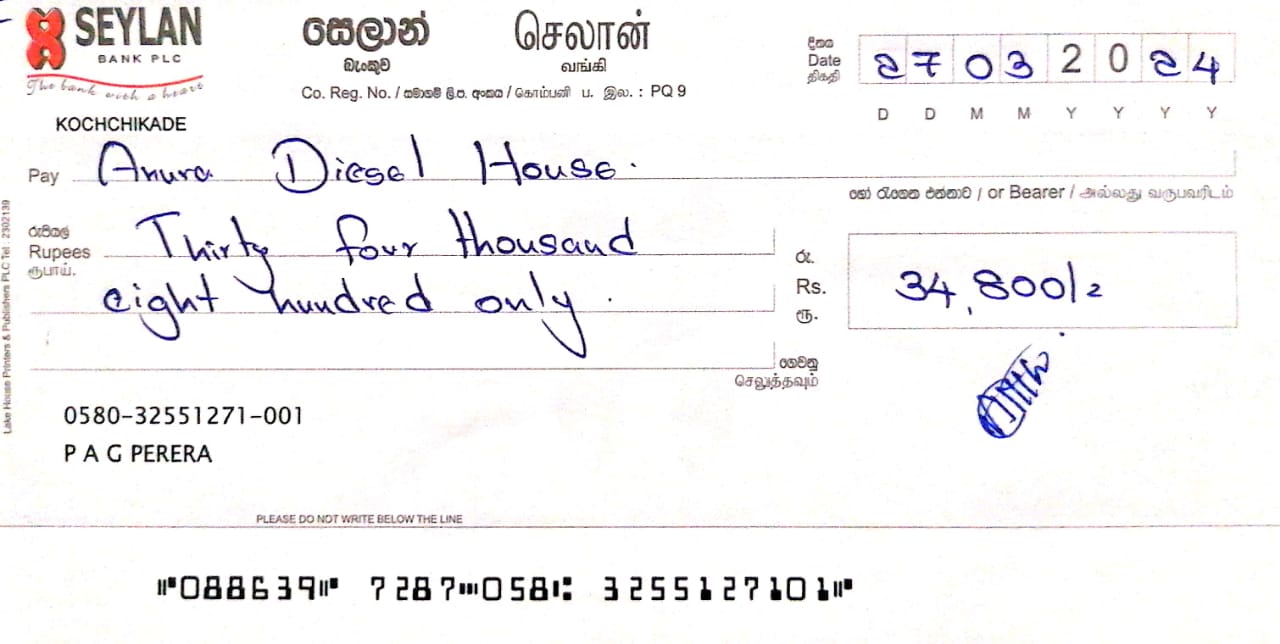 SEYLAN
BANK PLC
The bank with a heart
සෙලාන්
බැංකුව
செலான்
வங்கி
Co. Reg. No. / සමාගම් ලි.ප. අංකය / கொம்பனி ப. இல. : PQ 9
දිනය
Date
திகதி
27 03 2024
D D M M Y Y Y Y
KOCHCHIKADE
Pay Anura Diesel House.
හෝ රැගෙන එන්නාට / or Bearer / அல்லது வருபவரிடம்
රුපියල්
Rupees
ரூபாய்.
Thirty four thousand
eight hundred only.
රු.
Rs.
ரூ.
34,800/=
ගෙවනු
செலுத்தவும்
0580-32551271-001
P A G PERERA
PLEASE DO NOT WRITE BELOW THE LINE
⑈088639⑈ 7287⑉058⑆ 3255127101⑈
Lake House Printers & Publishers PLC Tel : 2302139